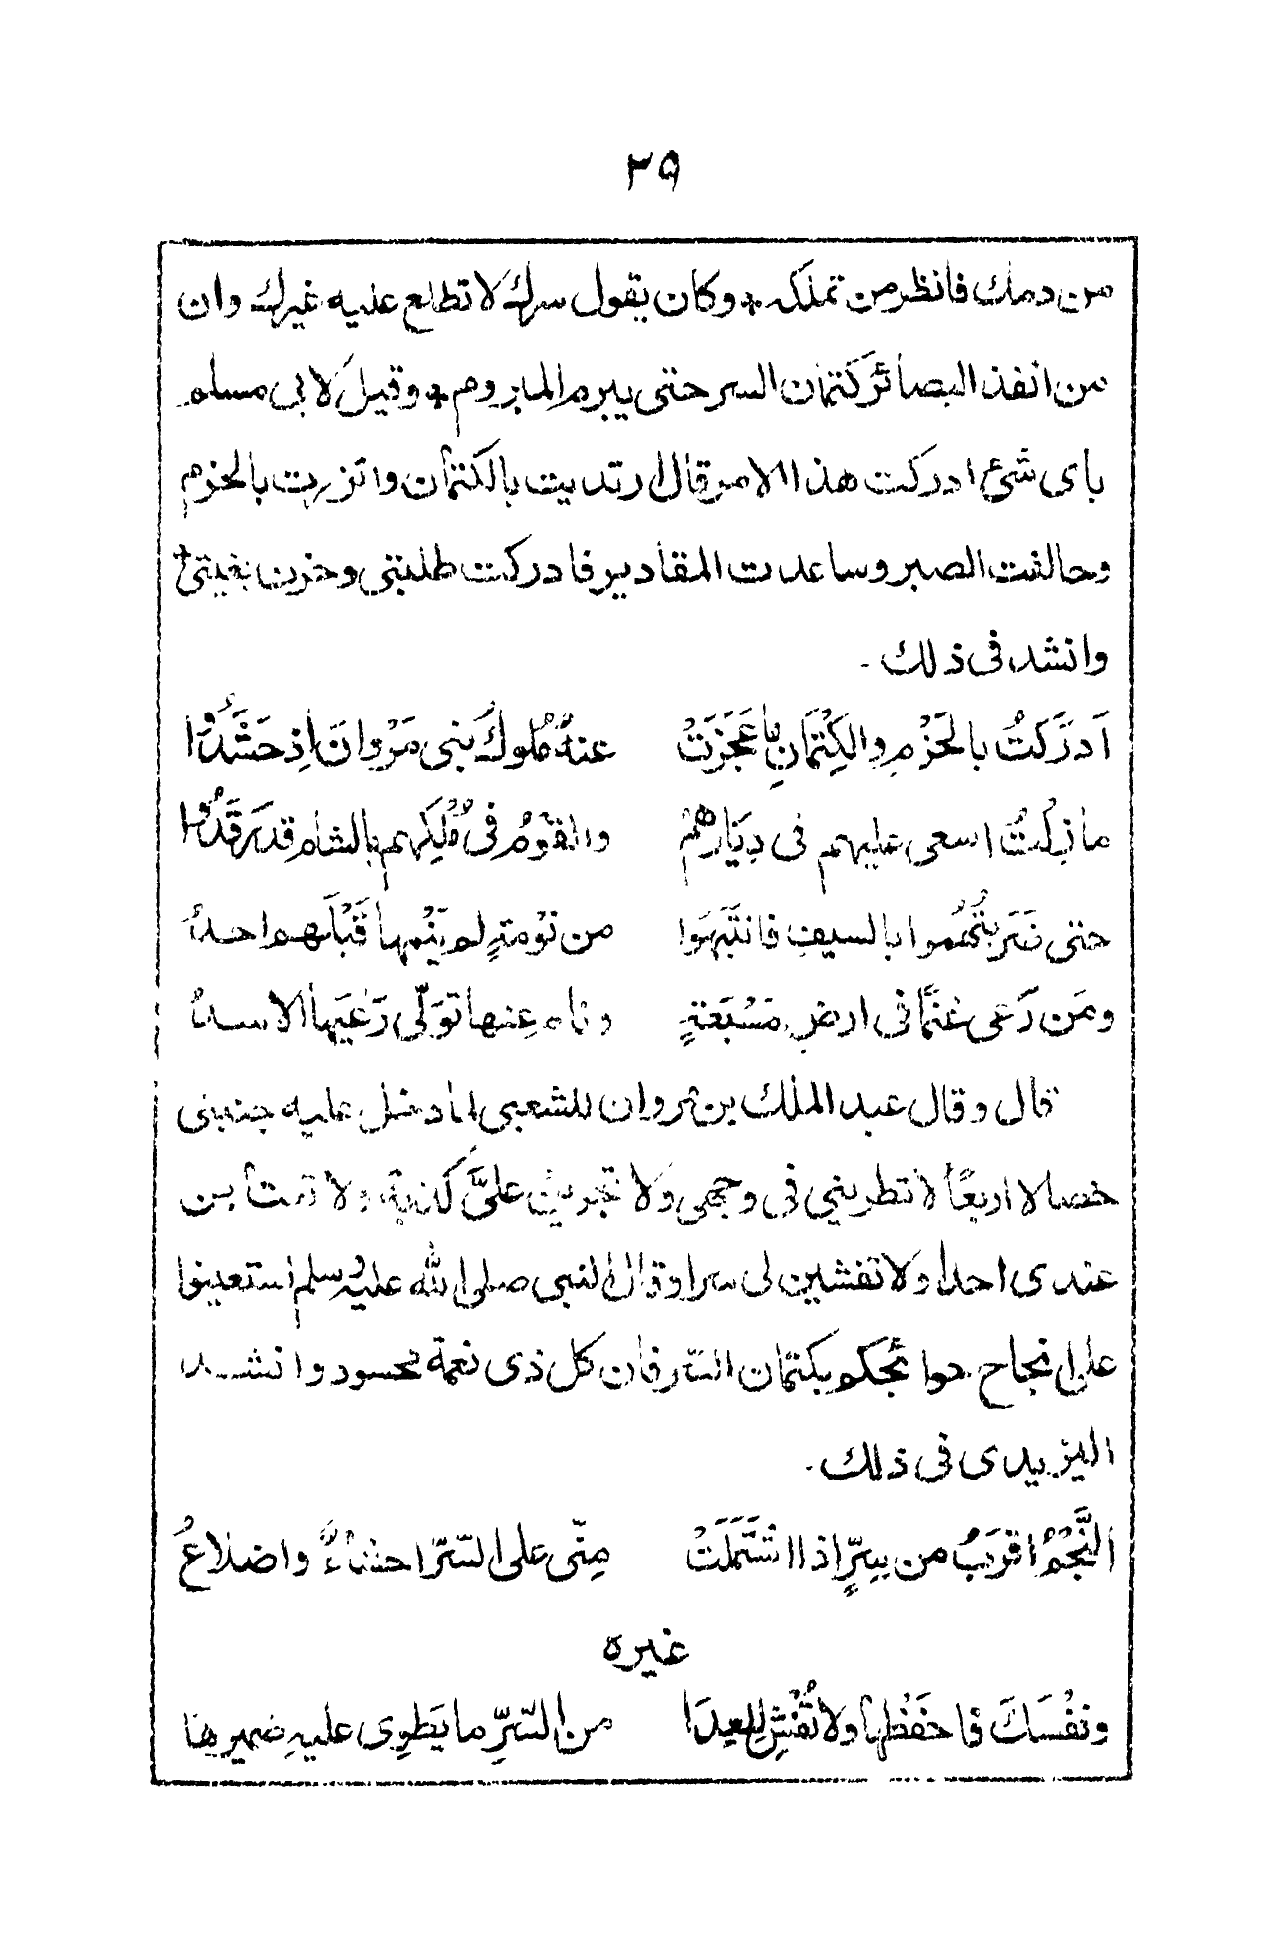 ٣٩
من دمك فانظر من تملكه * وكان يقول سرك لا تطلع عليه غيرك وان
من انفذ البصائر كتمان السر حتى يبرم المبروم * وقيل لابى مسلم
باى شئ ادركت هذا الامر قال ارتديت بالكتمان واتزرت بالحزم
وحالفت الصبر وساعدت المقادير فادركت طلبتى وحزت بغيتى *
وانشد فى ذلك -
اَدرَكتُ بالحَزْمِ والكِتمَانِ ما عَجَزَتْ عنهُ مُلوكُ بَنى مَرْوانَ اِذ حَشَدُوْا
ما زِلتُ اسعى عليهم فى دِيَارِهمُ والقَوْمُ فى مُلْكِهم بالشام قد رَقَدُوْا
حتى ضَرَبتُهُمُوا بالسيفِ فانتَبَهَوا من نَوْمةٍ لم يَنَمْها قَبْلَهم احدُ
ومَن رَعى غنَمًا فى ارضِ مَسْبَعَةٍ ونام عِنها تَوَلّى رَعْيَها الاسدُ
قال وقال عبد الملك بن مروان للشعبى لما دخل عليه جنبنى
خصالا اربعًا لا تطرينى فى وجهى ولا تجرين علىَّ كذبة ولا تغتابن
عندى احدا ولا تفشين لى سرا وقال النبى صلى الله عليه وسلم استعينوا
على انجاح حوائجكم بكتمان السّر فان كل ذى نعمة محسود وانشد
اليزيدى فى ذلك -
النَّجْمُ اقرَبُ من سِرٍّ اذا اشتَمَلَتْ مِنّى على السّرّ احشاءٌ واضلاعُ
غيره
ونفْسَكَ فاحفَظْها ولا تُفْشِ لِلعِدَا من السّرِّ ما يَطوِى عليهِ ضميرها